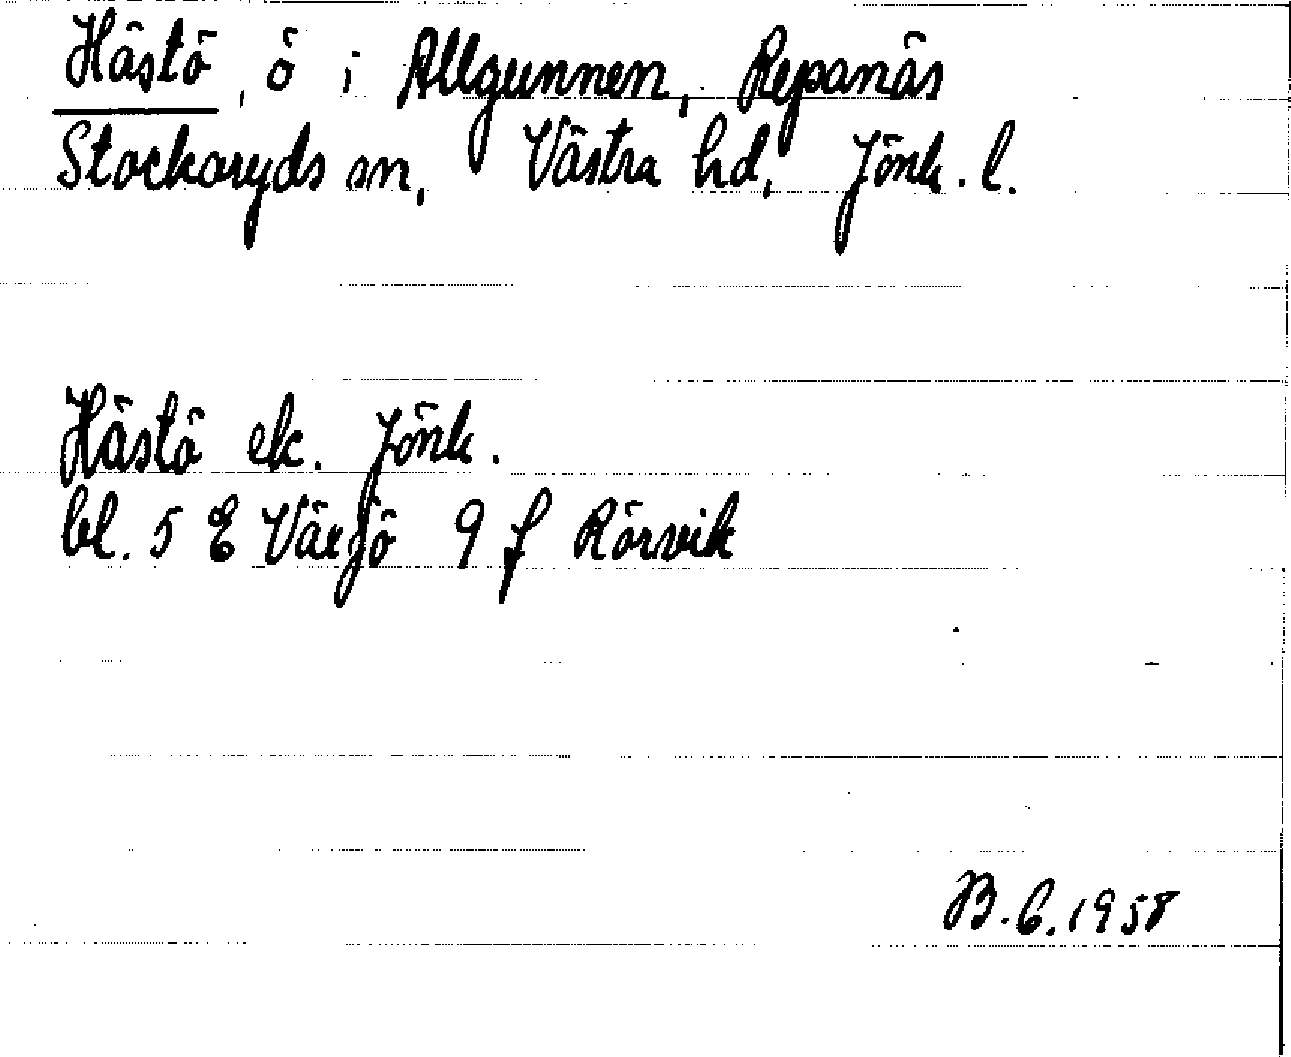 Hästö, ö i Allgunnen, Repanäs
Stockaryds sn, Västra hd, Jönk. l.
Hästö ek. Jönk.
bl. 5 E Växjö 9 f Rörvik
B.G. 1958